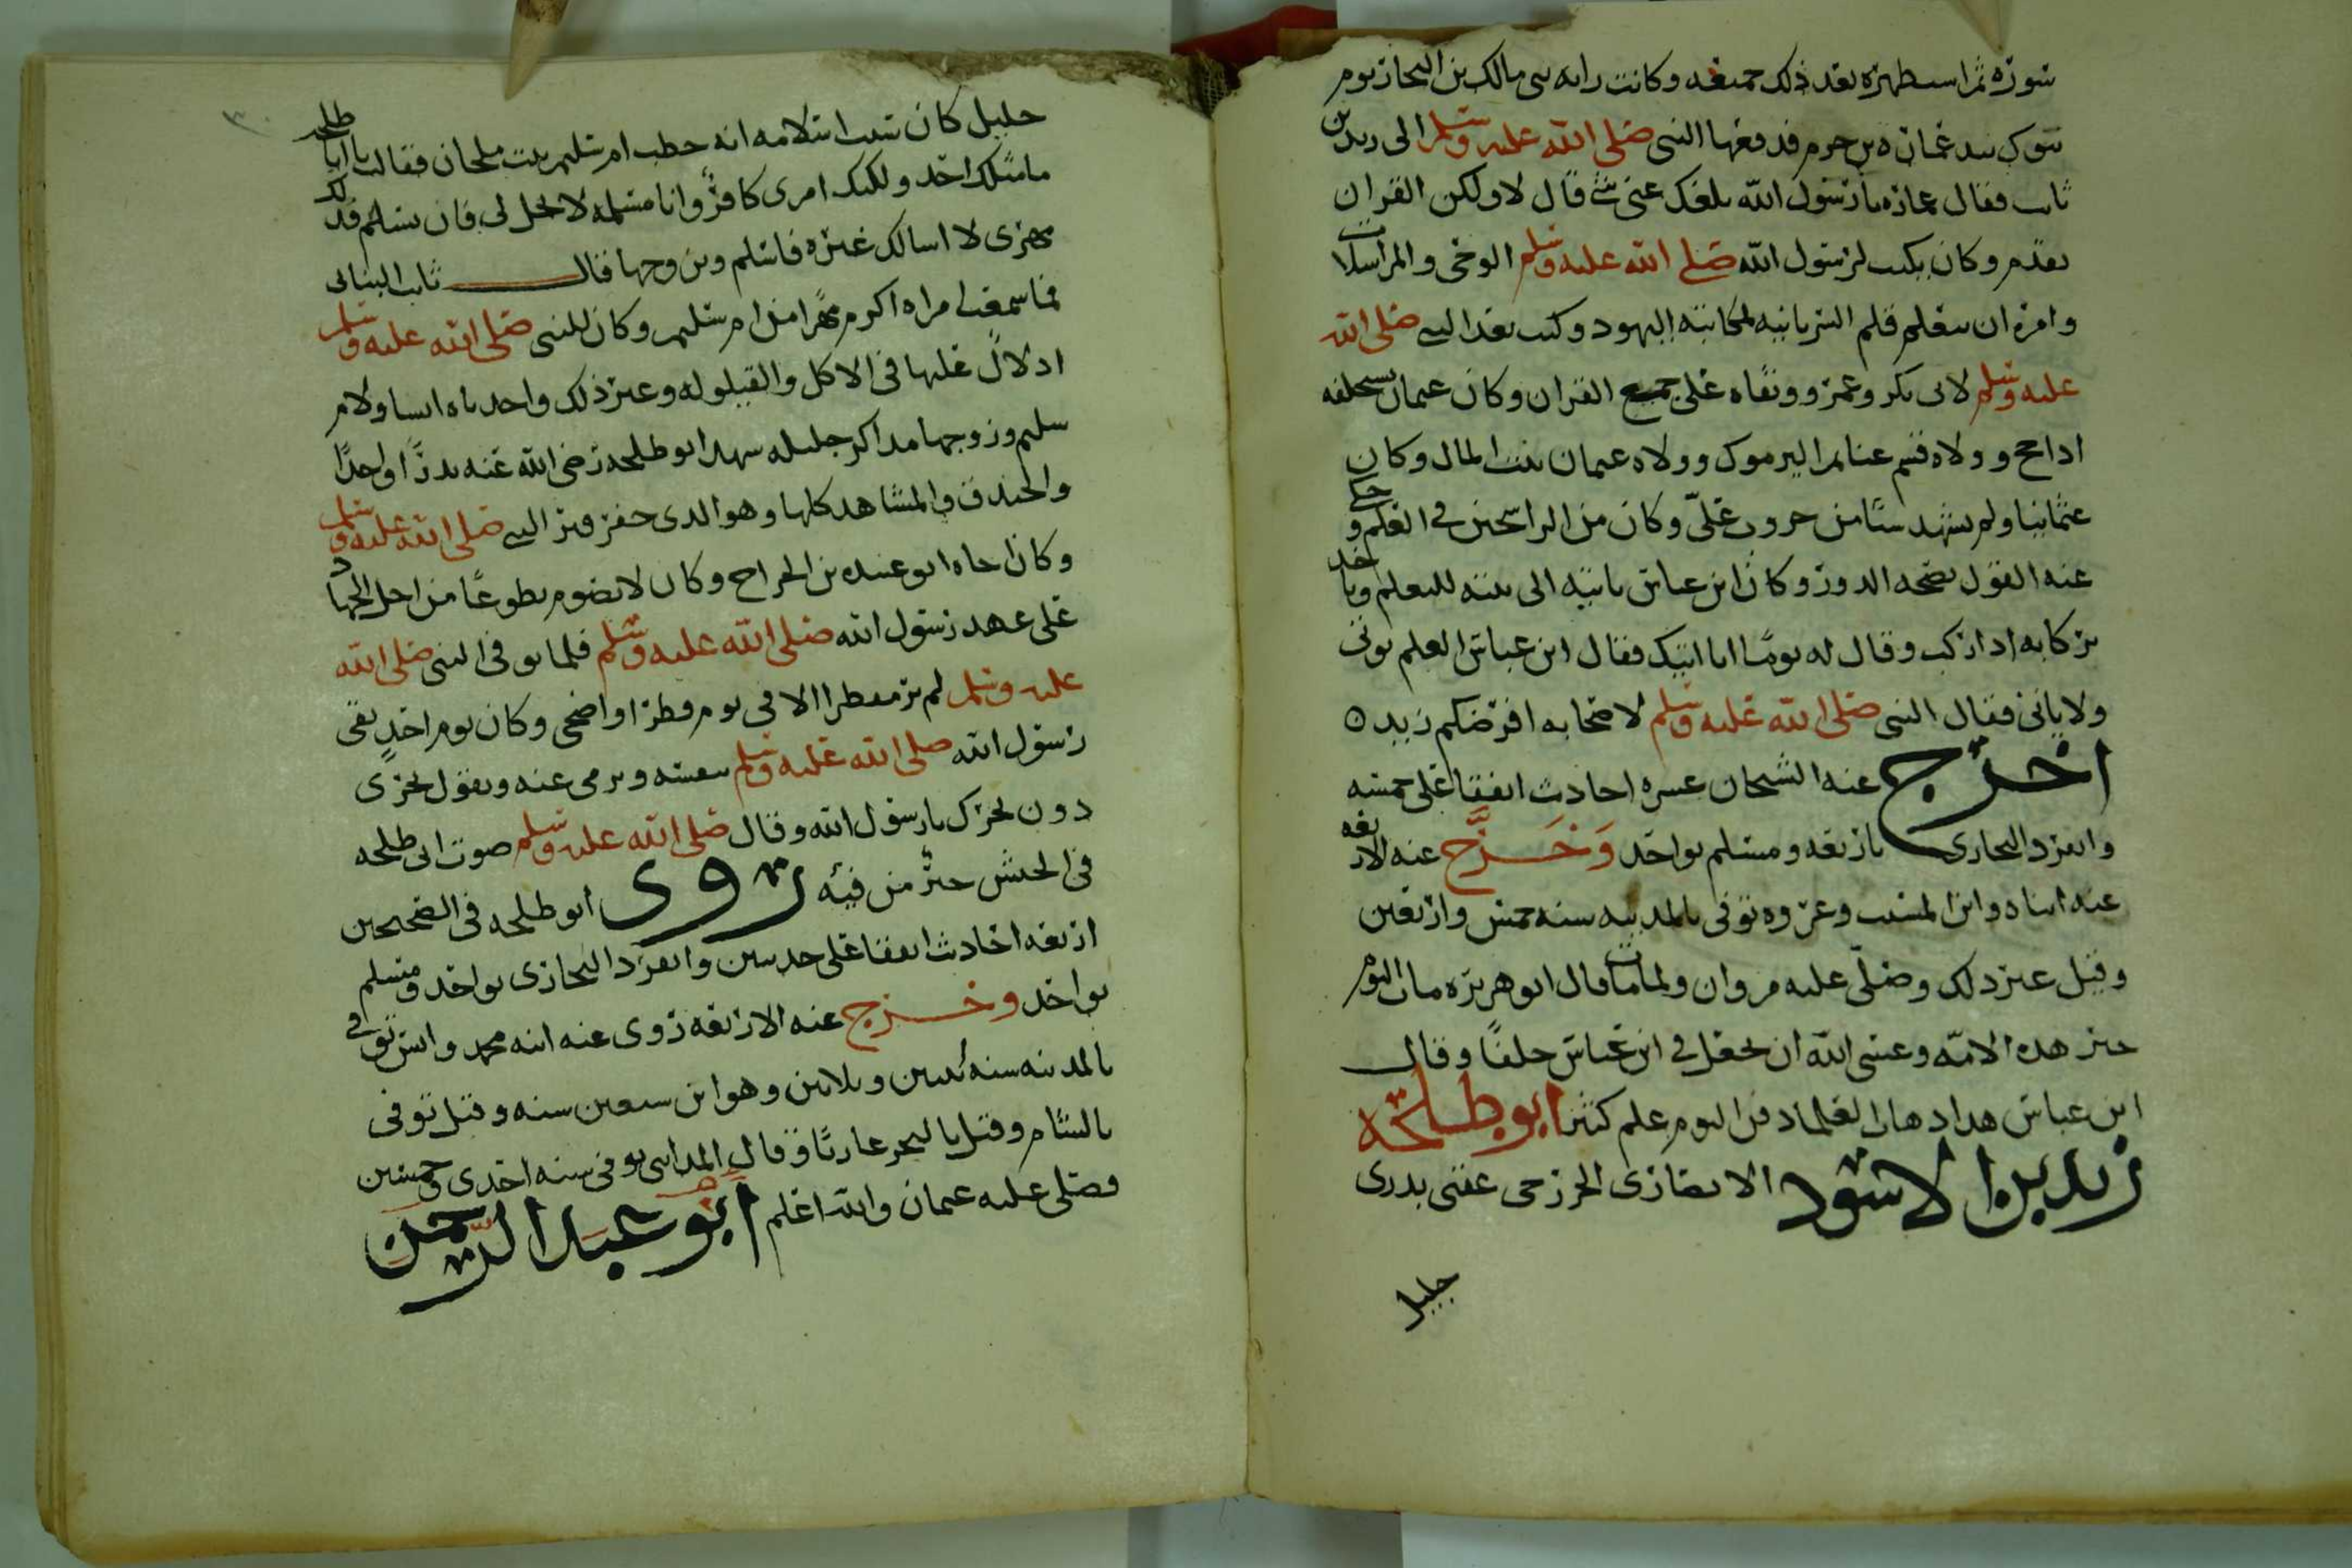 سورة ثم استظهره بعد ذلك جميعه وكانت راية بني مالك بن النجار يوم
تبوك بيد عمارة بن حزم فدفعها النبي صلى الله عليه وسلم الى زيد بن
ثابت فقال عمارة يا رسول الله بلغك عني شي قال لا ولكن القران
يقدم وكان يكتب لرسول الله صلى الله عليه وسلم الوحي والمراسلات
وامره ان يتعلم قلم السريانيه لمكاتبته اليهود وكتب بعد النبي صلى الله
عليه وسلم لابي بكر وعمر ووثقاه على جميع القران وكان عثمان يستخلفه
اذا حج وولاه قسم غنايم اليرموك وولاه عثمان بيت المال وكان
عثمانيا ولم يشهد شيا من حروب علي وكان من الراسخين في العلم وحكي
عنه القول بصحة الدور وكان ابن عباس ياتيه الى بيته للتعلم وياخذ
بركابه اذا ركب وقال له يوما انا اتيك فقال ابن عباس العلم يوتى
ولا ياتي فقال النبي صلى الله عليه وسلم لاصحابه افرضكم زيد ه
اخرج عنه الشيخان عشره احاديث اتفقا على خمسه
وانفرد البخاري باربعه ومسلم بواحد وخرج عنه الاربعه
عنه ابناه وابن المسيب وعروه توفي بالمدينه سنه خمس واربعين
وقيل غير ذلك وصلى عليه مروان ولما مات قال ابو هريره مات اليوم
حبر هذه الامه وعسى الله ان يجعل في ابن عباس خلفا وقال
ابن عباس هذا ذهاب العلما دفن اليوم علم كثير ابو طلحه
زيد بن الاسود الانصاري الخزرجي عقبي بدري
جليل
جليل كان سبب اسلامه انه خطب ام سليم بنت ملحان فقالت يا ابا طلحه
ما مثلك احد ولكنك امرئ كافر وانا مسلمه لا تحل لي فان تسلم فذلك
مهري لا اسالك غيره فاسلم وتزوجها قال ثابت البناني
فما سمعت امراه اكرم مهرا من ام سليم وكان للنبي صلى الله عليه وسلم
ادلال عليها في الاكل والقيلوله وغير ذلك واخدماه انسا ولام
سليم وزوجها مذاكر جليله شهد ابو طلحه رضي الله عنه بدرا واحدا
والخندق والمشاهد كلها وهو الذي حفر قبر النبي صلى الله عليه وسلم
وكان اخاه ابو عبيده بن الجراح وكان لا يصوم تطوعا من اجل الجهاد
على عهد رسول الله صلى الله عليه وسلم فلما توفي النبي صلى الله
عليه وسلم لم ير مفطرا الا في يوم فطر او اضحى وكان يوم احد يقي
رسول الله صلى الله عليه وسلم بنفسه ويرمي عنه ويقول نحري
دون نحرك يا رسول الله وقال صلى الله عليه وسلم صوت ابي طلحه
في الجيش خير من فيه روى ابو طلحه في الصحيحين
اربعه احاديث اتفقا على حديثين وانفرد البخاري بواحد ومسلم
بواحد وخرج عنه الاربعه روى عنه ابنه محمد وانس توفي
بالمدينه سنه اثنين وثلاثين وهو ابن سبعين سنه وقيل توفي
بالشام وقيل بالبحر غازيا وقال المدايني توفي سنه احدى وخمسين
وصلى عليه عثمان والله اعلم ابو عبد الرحمن